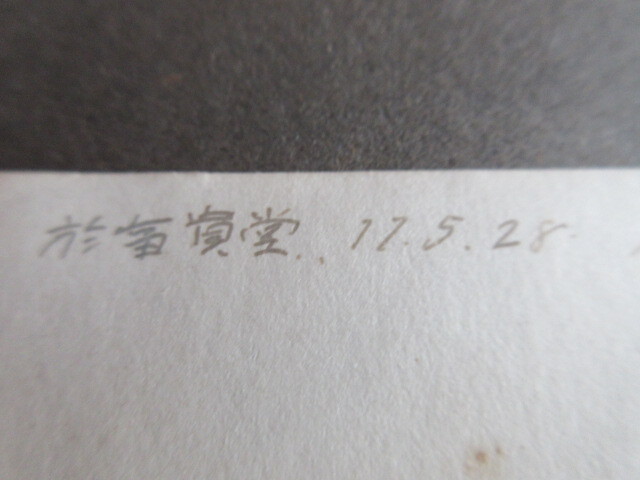 於富貴堂.. 17.5.28